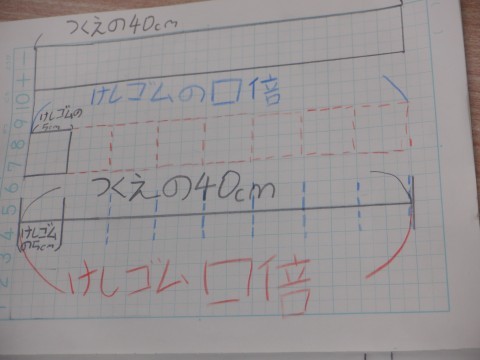 つくえの40cm
けしゴムの□倍
けしゴムの
5cm
つくえの40cm
けしゴム
の5cm
けしゴム□倍
1 2 3 4 5 6 7 8 9 10 十 一